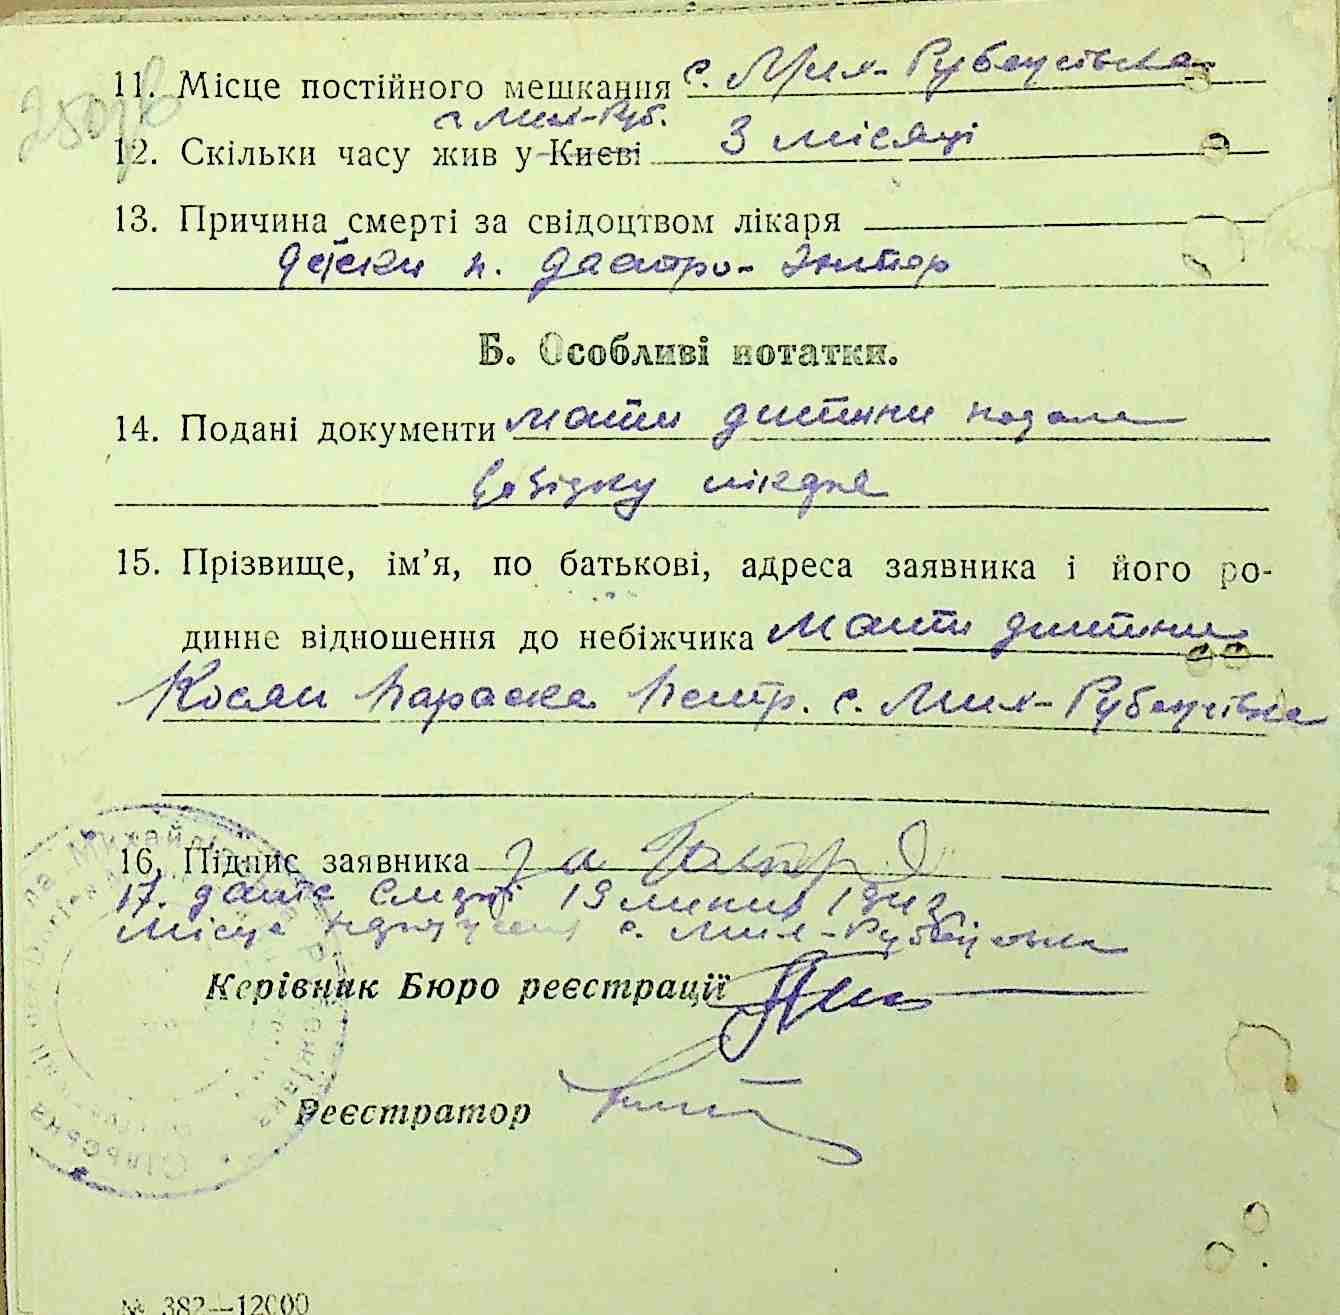 11. Місце постійного мешкання с. Мих-Рубежівка
с Мих-Руб.
12. Скільки часу жив у Києві 3 місяці
13. Причина смерті за свідоцтвом лікаря
Детски п. Гастро-Энтер
Б. Особливі нотатки.
14. Подані документи Мати дитини подала
довідку лікаря
15. Прізвище, ім’я, по батькові, адреса заявника і його ро-
динне відношення до небіжчика Мати дитини
Косян Параска Петр. с. Мих-Рубежівка
16. Підпис заявника
17. дата смерті 19 липня 1942
Місце с. Мих-Рубежівка
Керівник Бюро реєстрації
Реєстратор
№ 382—12000